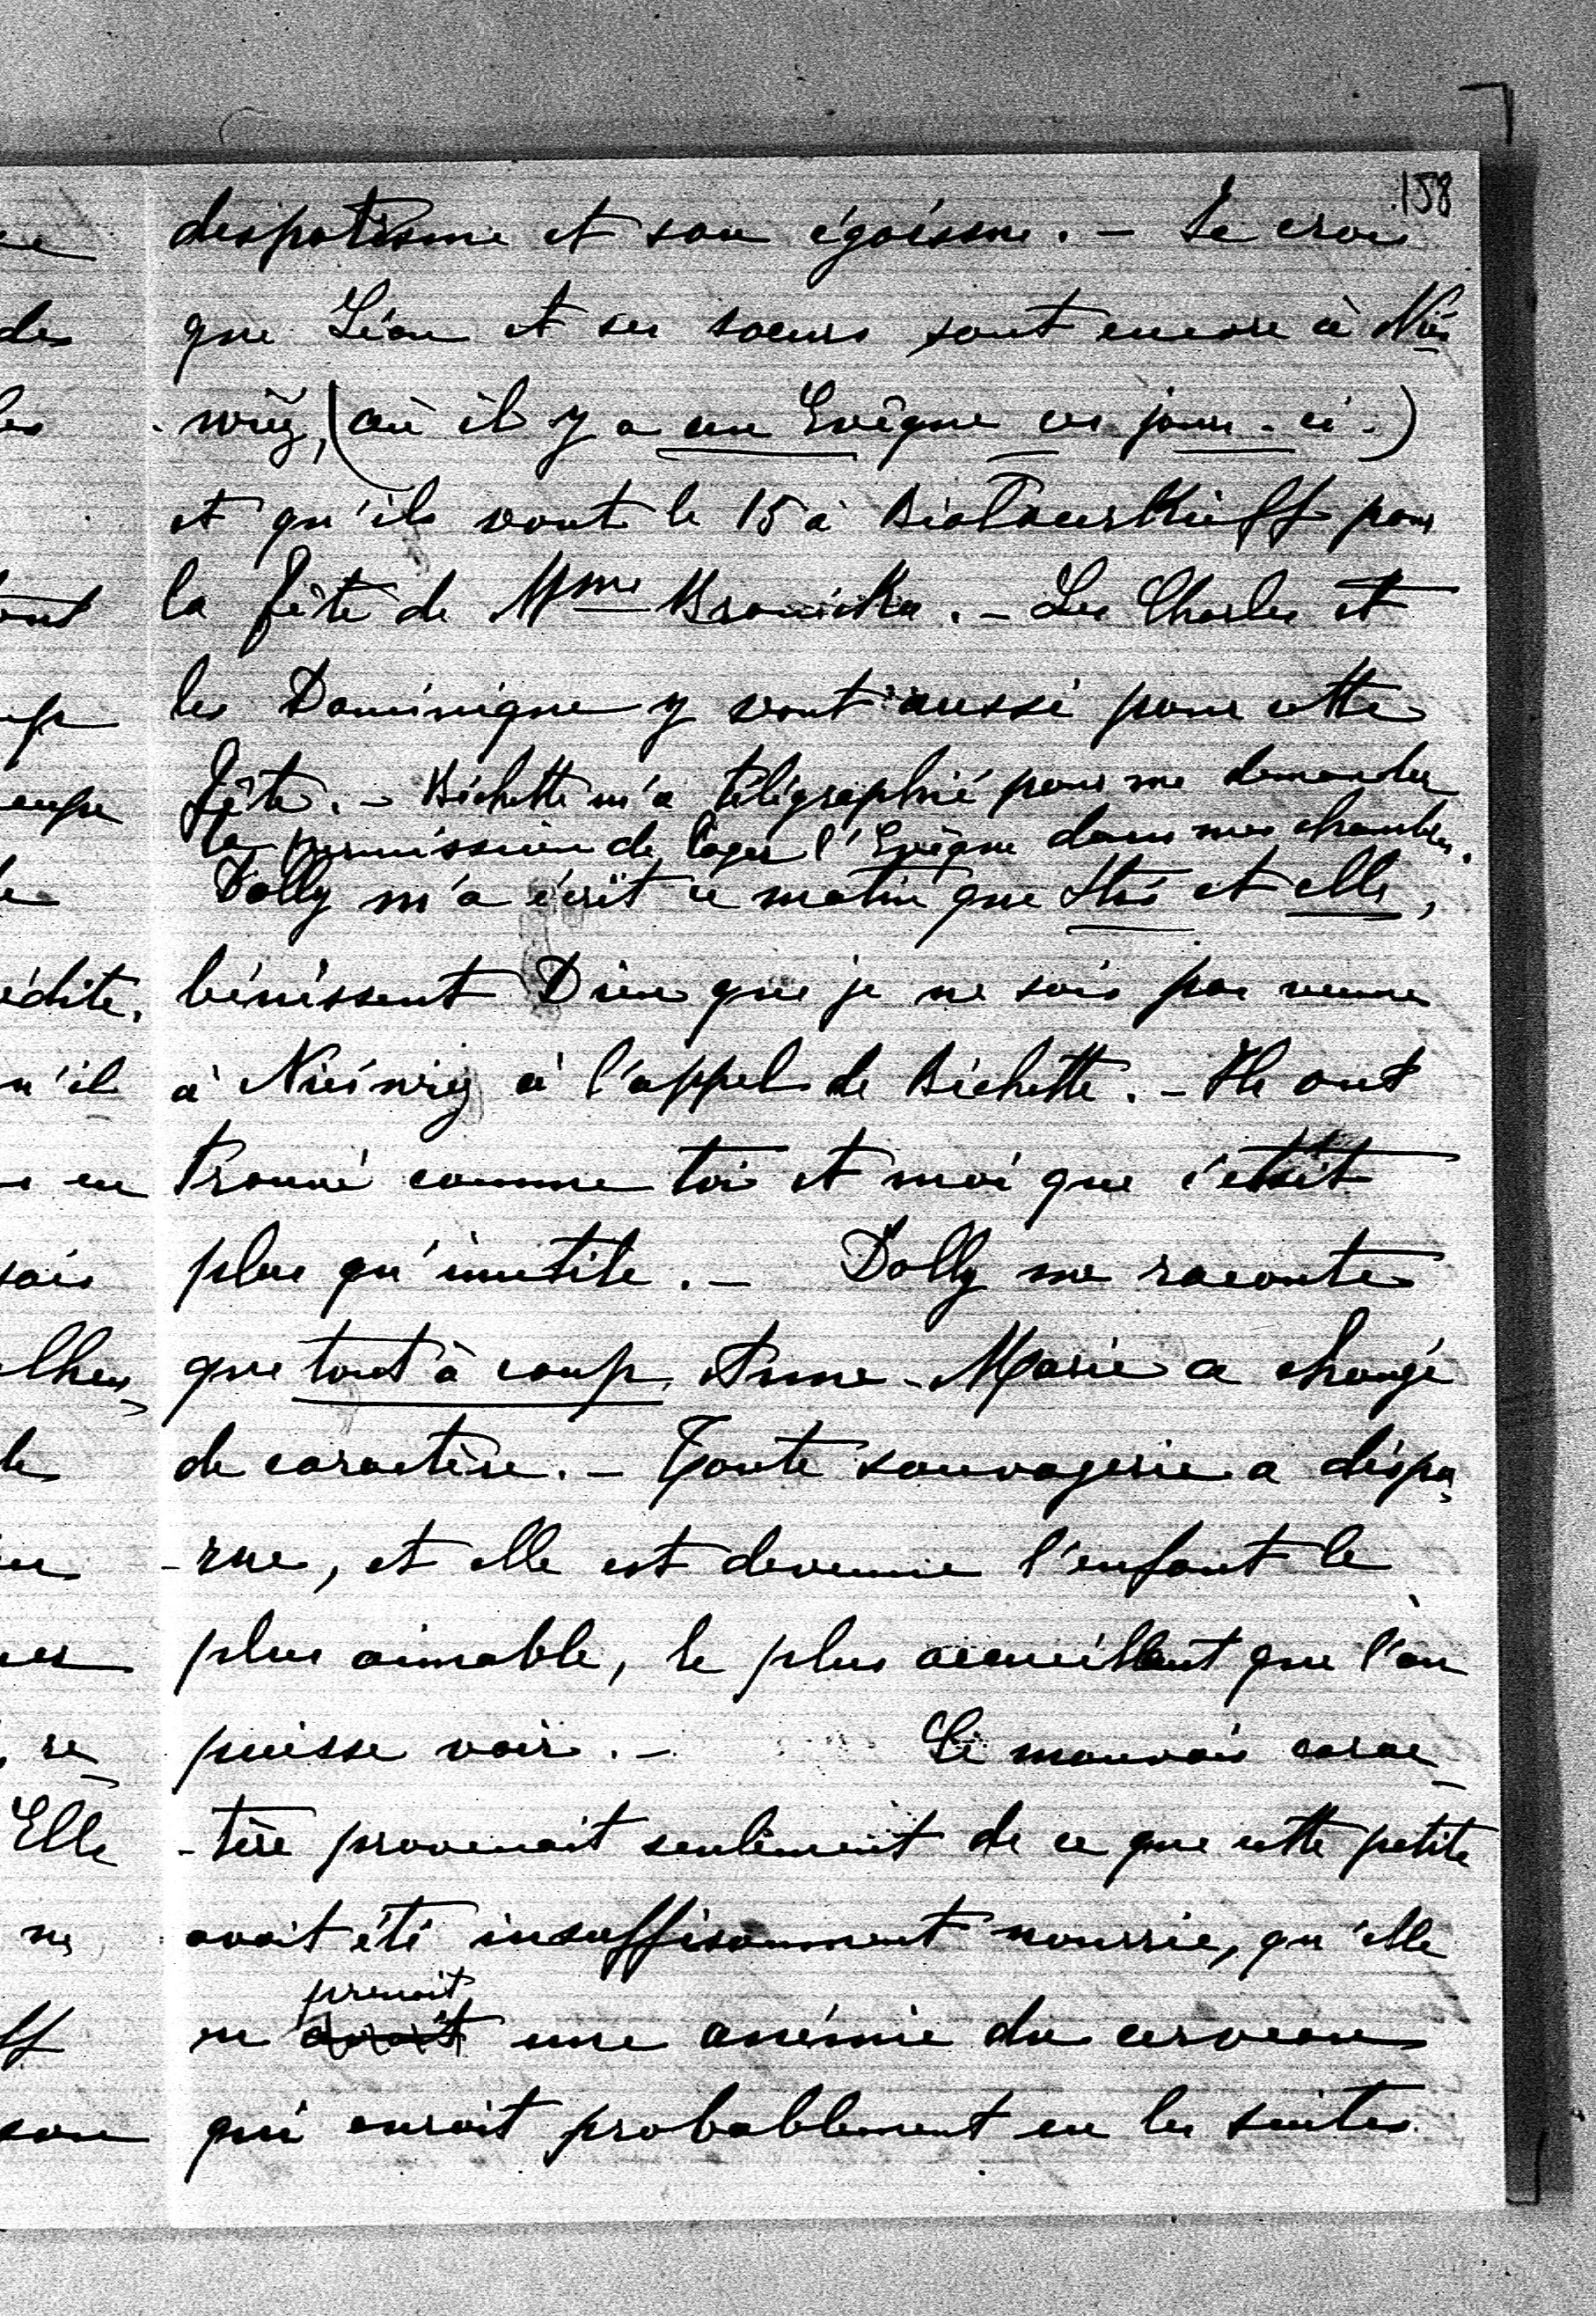 158
despotisme et son égoïsme. - Je crois
que Léon et ses soeurs sont encore à Niés
-wiéz, (où il y a un Evêque ces jours-ci.)
et qu'ils vont le 15 à Biała pour
la fête de Mme Branicka. - Les Charles et
les Dominique y vont aussi pour cette
fête. - Bichette m'a télégraphié pour me demander
la permission de loger l'Evêque dans mes chambres.
Dolly m'a écrit ce matin que Stas et elle,
bénissent Dieu que je ne sois pas venue
à Nieśwież à l'appel de Bichette. - Ils ont
trouvé comme toi et moi que c'était
plus qu'inutile. - Dolly me raconte
que tout à coup, Anne-Marie a changé
de caractère. - Toute sauvagerie a dispa
-rue, et elle est devenue l'enfant le
plus aimable, le plus accueillant que l'on
puisse voir. - Le mauvais carac
-tère provenait seulement de ce que cette petite
avait été insuffisamment nourrie, qu'elle
prenait
en avait une anémie du cerveau
qui aurait probablement eu les suites